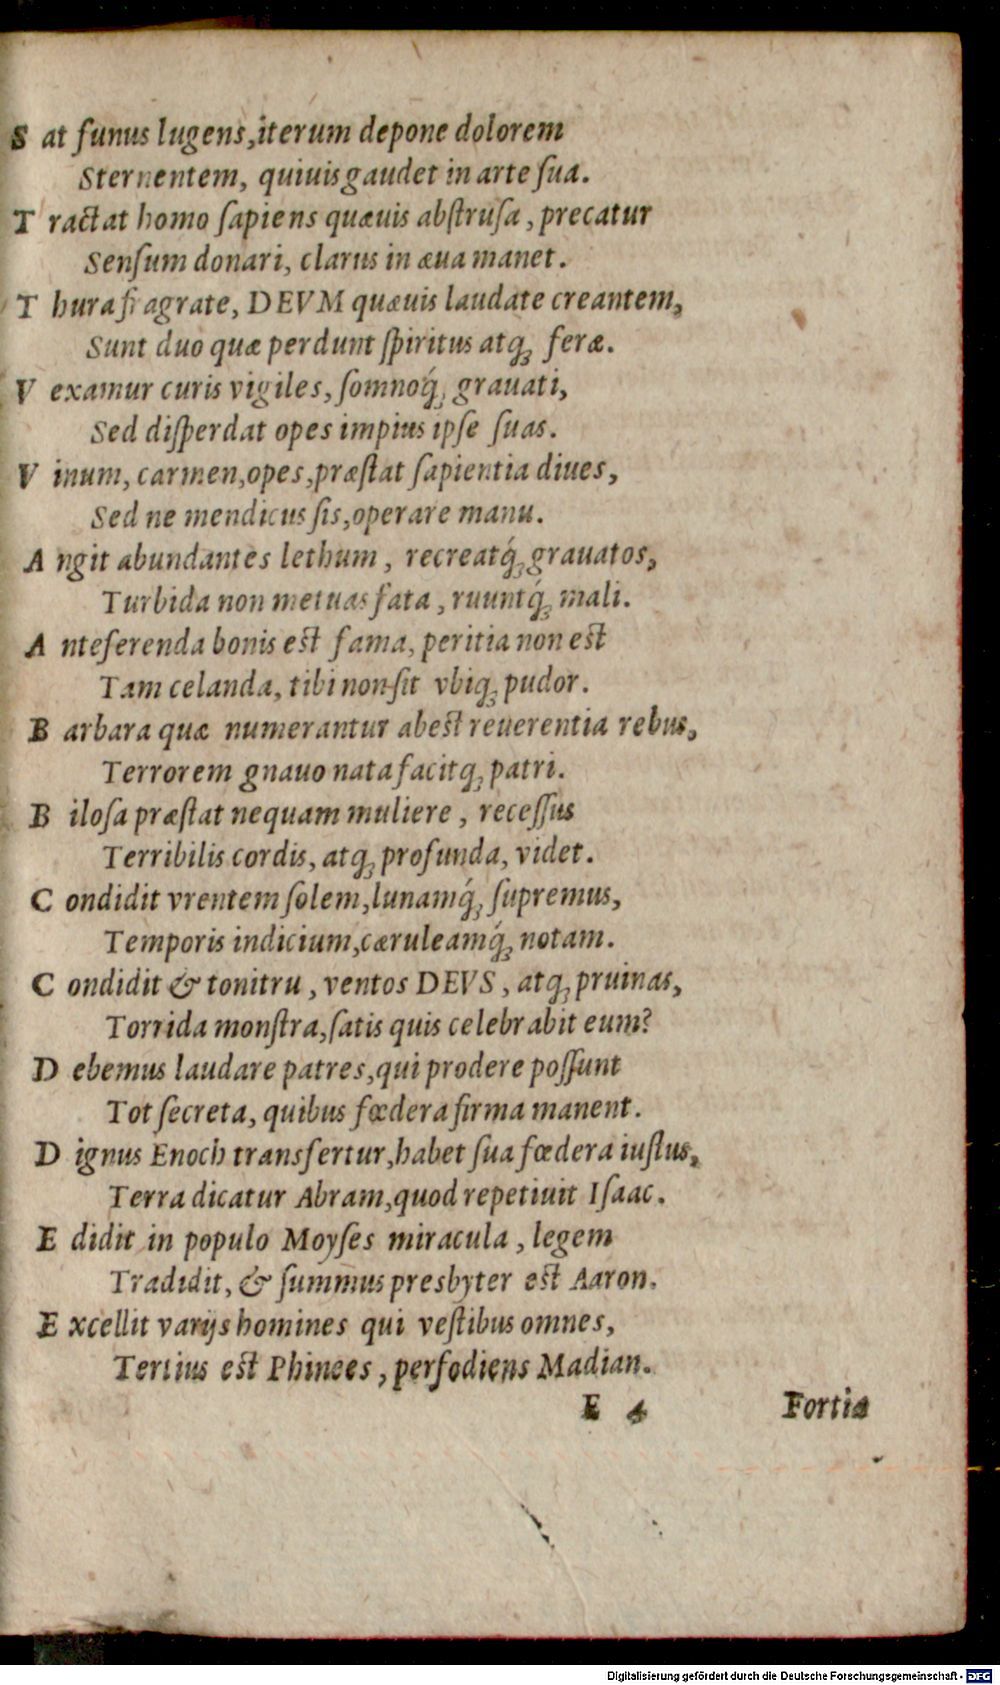 S at funus lugens,iterum depone dolorem
Sternentem, quiuis gaudet in arte ſua.
T ractat homo ſapiens quæuis abſtruſa, precatur
Senſum donari, clarus in æua manet.
T hura fragrate, DEVM quæuis laudate creantem,
Sunt duo quæ perdunt ſpiritus atq; feræ.
V examur curis vigiles, ſomnoq́; grauati,
Sed diſperdat opes impius ipſe ſuas.
V inum, carmen,opes,præſtat ſapientia diues,
Sed ne mendicus ſis,operare manu.
A ngit abundantes lethum, recreatq́; grauatos,
Turbida non metuas fata, ruuntq́; mali.
A nteferenda bonis eſt fama, peritia non eſt
Tam celanda, tibi non ſit vbiq; pudor.
B arbara quæ numerantur abeſt reuerentia rebus,
Terrorem gnauo nata facitq; patri.
B iloſa præſtat nequam muliere, receſſus
Terribilis cordis, atq; profunda, videt.
C ondidit vrentem ſolem,lunamq́; ſupremus,
Temporis indicium,cæruleamq́; notam.
C ondidit & tonitru, ventos DEVS, atq; pruinas,
Torrida monſtra,ſatis quis celebrabit eum?
D ebemus laudare patres,qui prodere poſſunt
Tot ſecreta, quibus fœdera firma manent.
D ignus Enoch transfertur,habet ſua fœdera iuſtus,
Terra dicatur Abram,quod repetiuit Iſaac.
E didit in populo Moyſes miracula, legem
Tradidit, & ſummus presbyter eſt Aaron.
E xcellit varijs homines qui veſtibus omnes,
Tertius eſt Phinees, perfodiens Madian.
E 4 Fortia
Digitalisierung gefördert durch die Deutsche Forschungsgemeinschaft - DFG